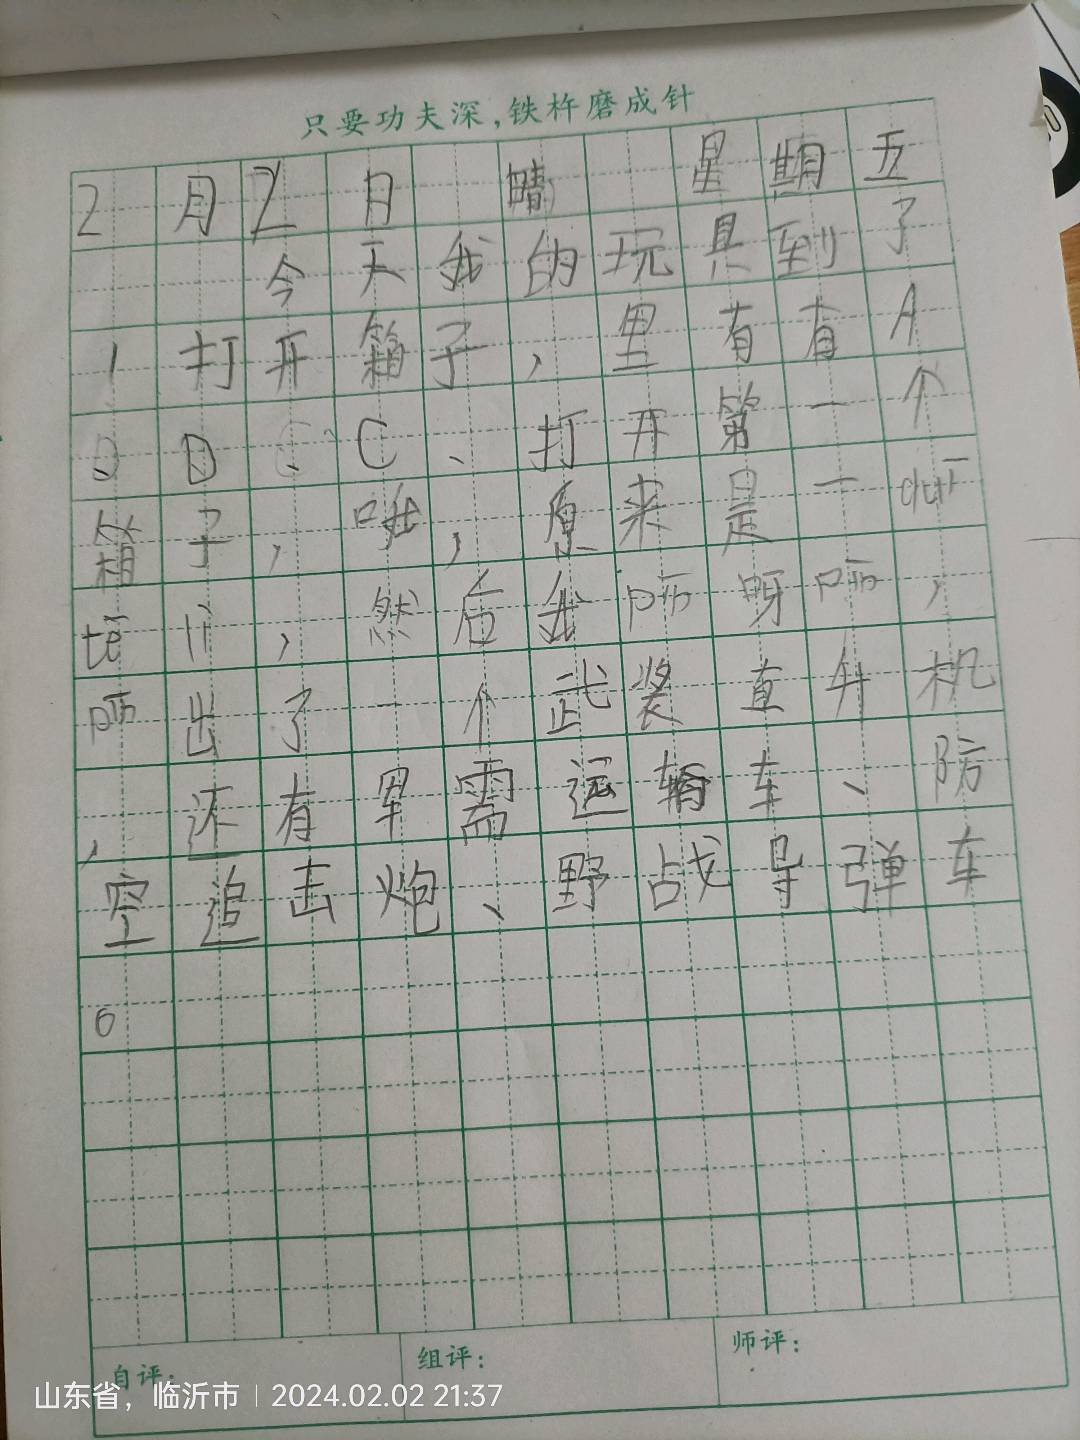 只要功夫深,铁杵磨成针
2月2日 晴 星期五
今天我的玩具到了
1打开箱子,里有有A
D C、打开第一个
箱子,哦,原来是一
,然后我呀,
出了一个武装直升机
,还有军需运输车、防
空追击炮、野战导弹车
。
自评:
组评:
师评:
山东省,临沂市 | 2024.02.02 21:37